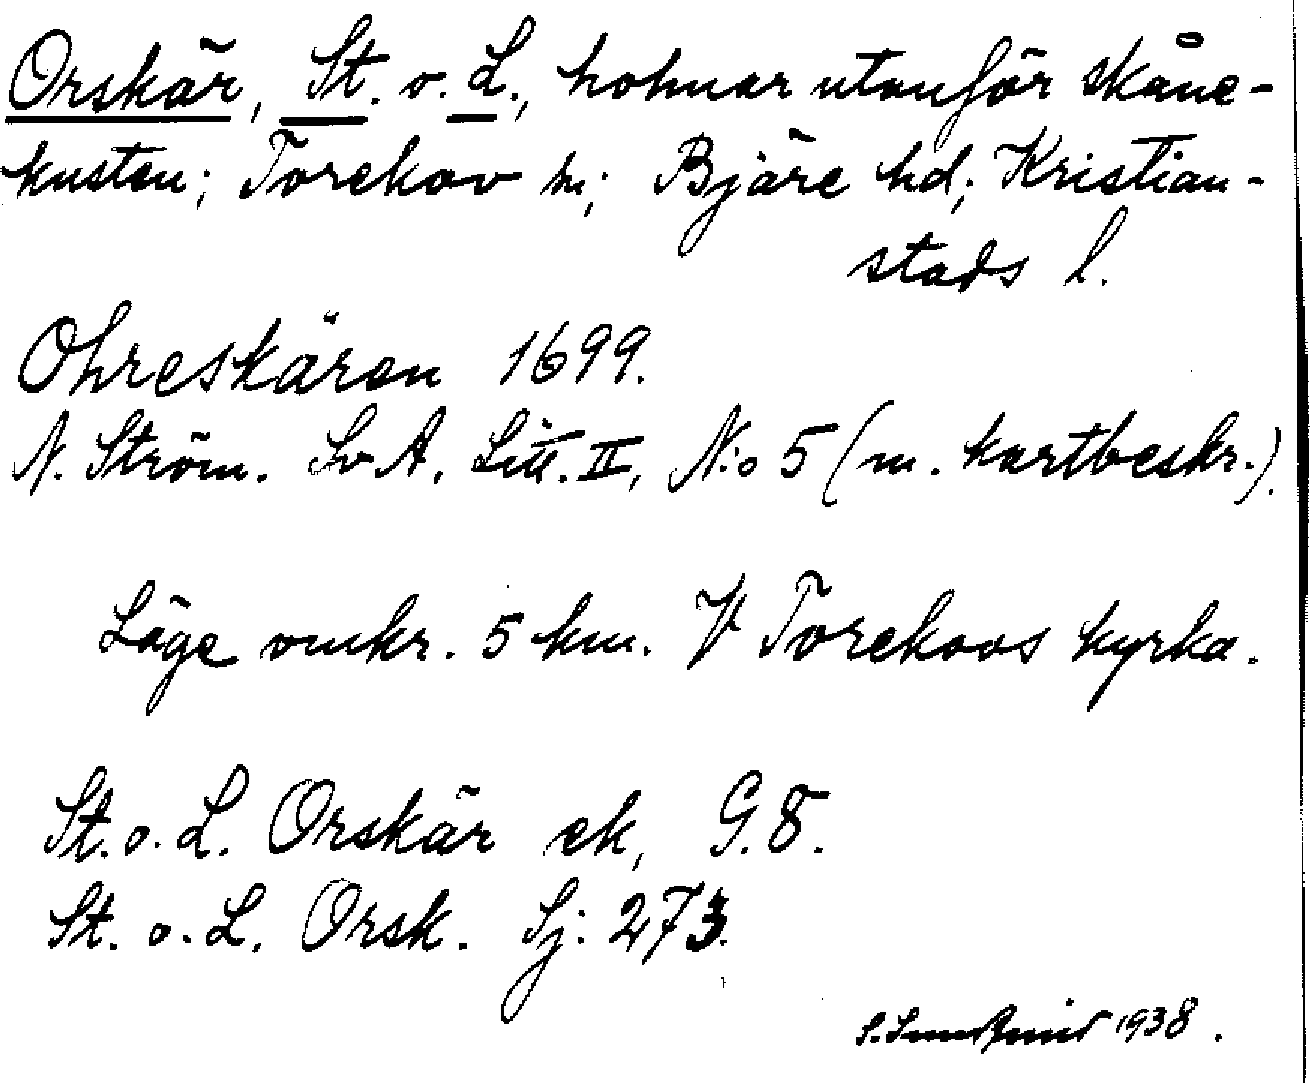 Orskär, St. o. L., holmar utanför Skåne-
kusten; Torekov sn; Bjäre hd; Kristian-
stads l.
Ohreskären 1699.
N. Ström. Sv A. Litt. II, N:o 5 (m. kartbeskr.).
Läge omkr. 5 km. V Torekovs kyrka.
St. o. L. Orskär ek, G. 8.
St. o. L. Orsk. Sj: 273.
1938.